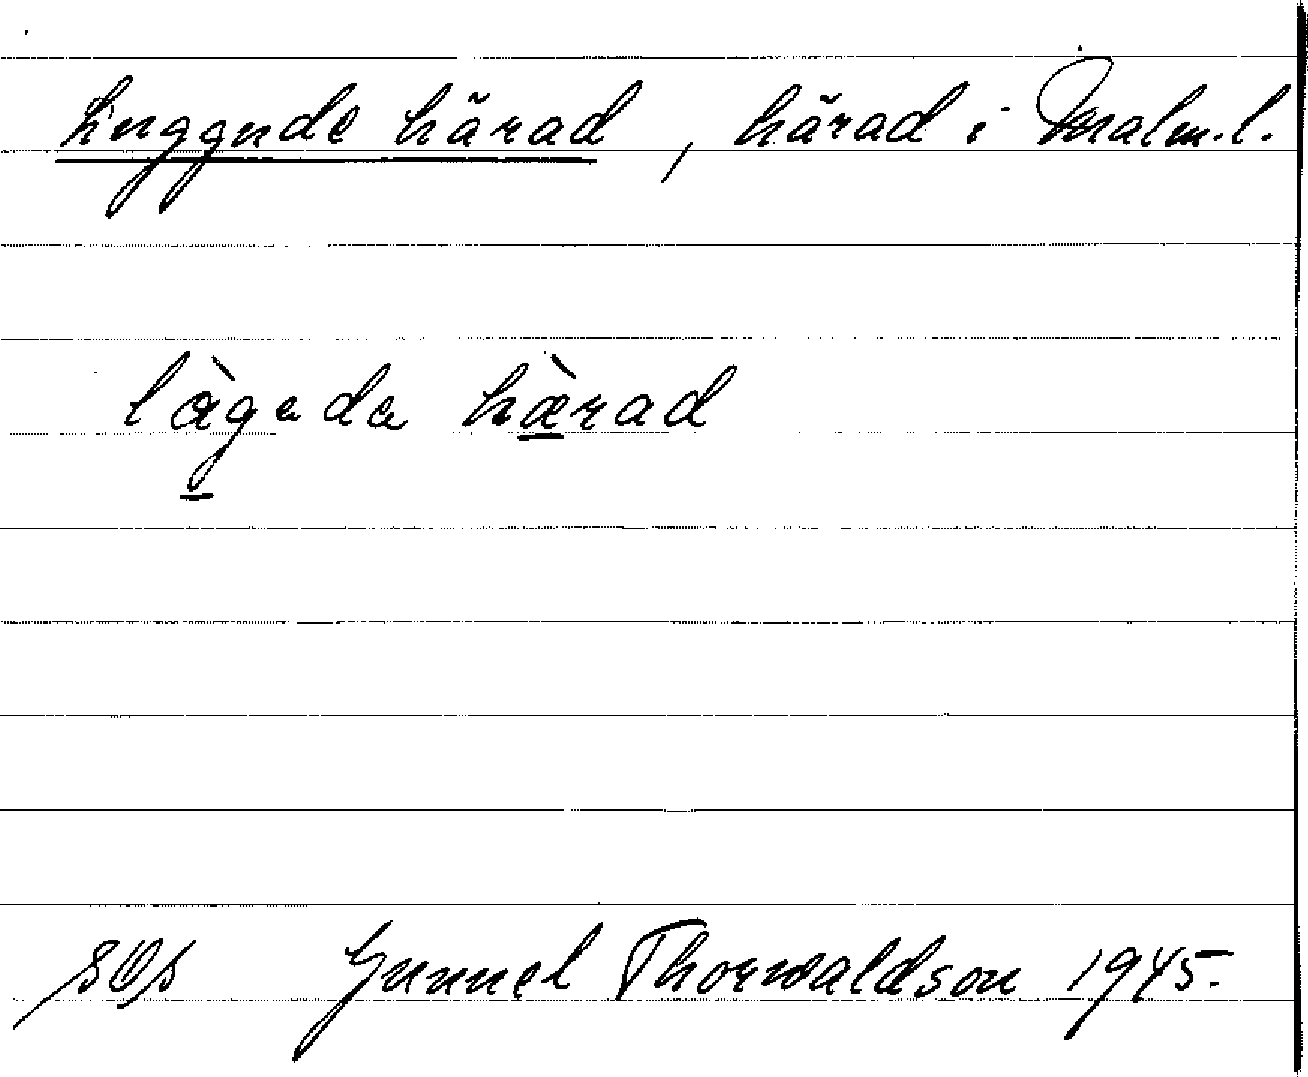 Luggude härad, härad i Malm.l.
làgeda hæ̀rad
Gunnel Thorwaldson 1945.